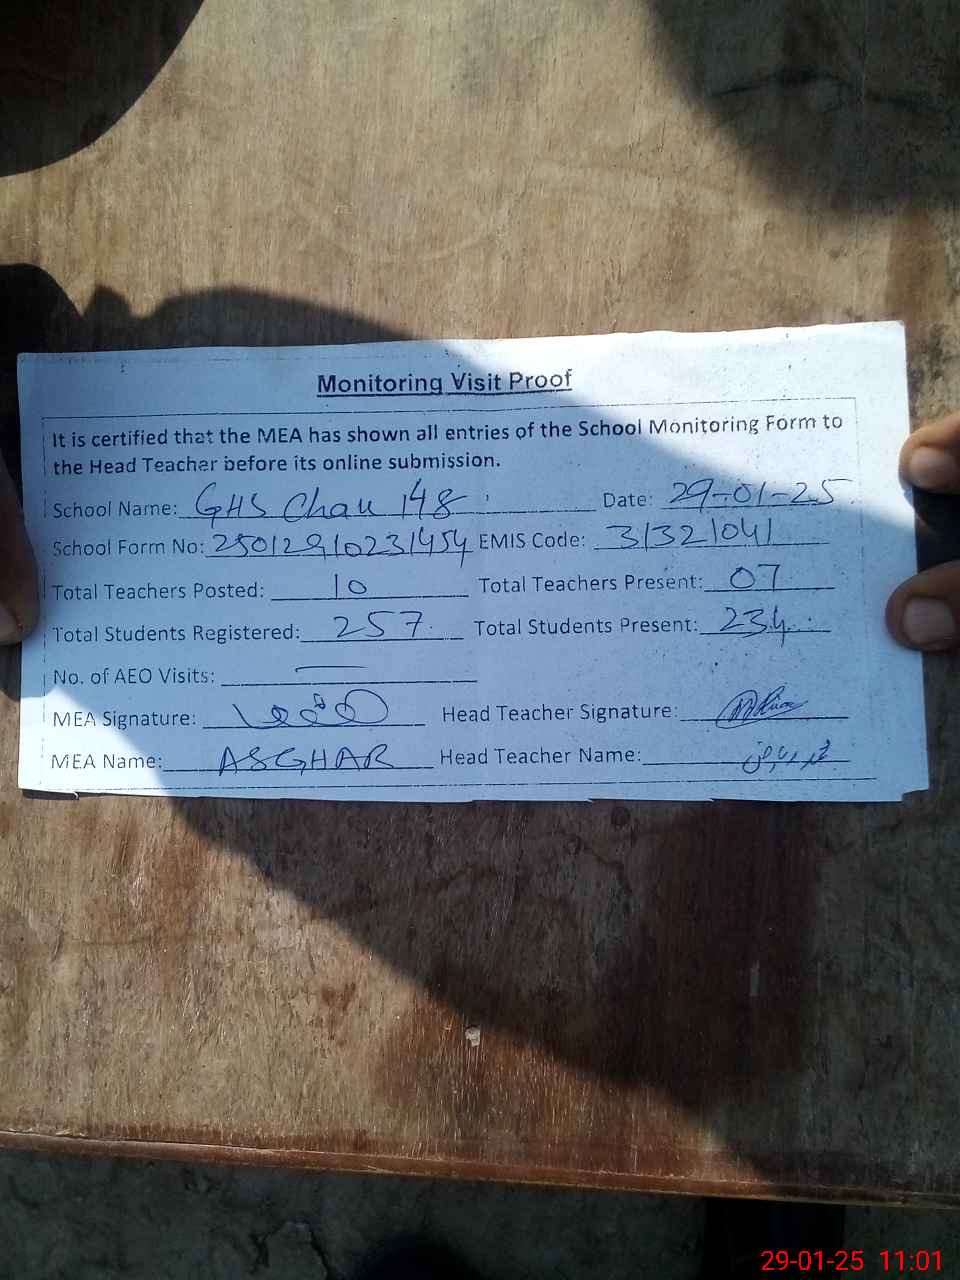 Monitoring Visit Proof
It is certified that the MEA has shown all entries of the School Monitoring Form to
the Head Teacher before its online submission.
School Name: GHS Chak 148 Date: 29-01-25
School Form No: 25012910231454 EMIS Code: 31321041
Total Teachers Posted: 10 Total Teachers Present: 07
Total Students Registered: 257 Total Students Present: 234
No. of AEO Visits: —
MEA Signature: Head Teacher Signature:
MEA Name: ASGHAR Head Teacher Name:
29-01-25 11:01